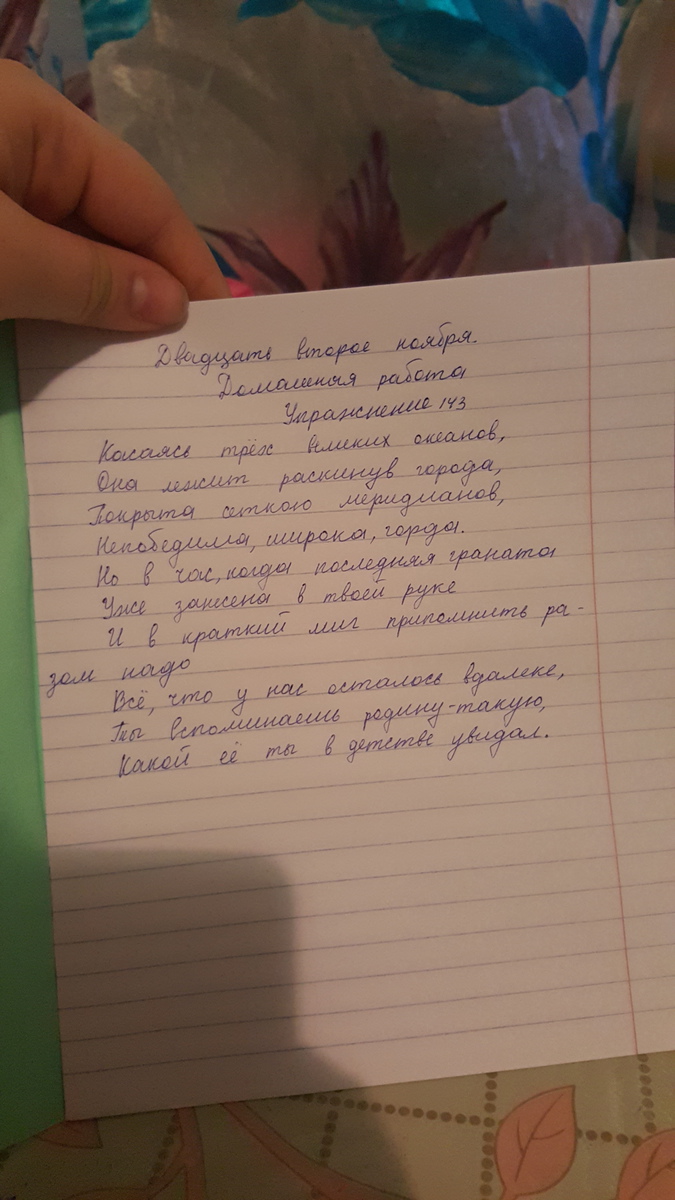 Двадцать второе ноября.
Домашняя работа
Упражнение 143
Касаясь трёх великих океанов,
Она лежит раскинув города,
Покрыта сеткою меридианов,
Непобедима, широка, горда.
Но в час, когда последняя граната
Уже занесена в твоей руке
И в краткий миг припомнить ра-
зом надо
Всё, что у нас осталось вдалеке,
Ты вспоминаешь родину-такую,
Какой её ты в детстве увидал.